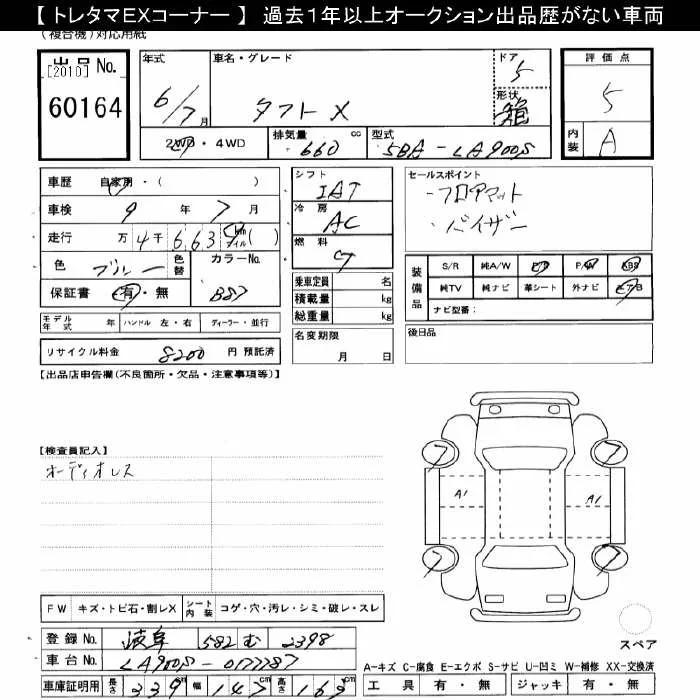 【 トレタマEXコーナー 】 過去1年以上オークション出品歴がない車両
(複合機)対応用紙
出品No.
[2010]
60164
年式
6/7月
車名・グレード
タフト X
ドア
5
形状
箱
評価点
5
内装
A
2WD・4WD
排気量
660 cc
型式
5BA-LA900S
車歴 自家用・( )
車検 9年 7月
走行 万 4千 663 km マイル( )
色 ブルー 色替
カラーNo.
B87
保証書 有・無
シフト
IAT
冷房
AC
燃料
G
乗車定員 名
積載量 kg
総重量 kg
セールスポイント
・フロアマット
・バイザー
装備品
S/R 純A/W P/S P/W ABS
純TV 純ナビ 革シート 外ナビ ETB
ナビ型番:
モデル年式 年 ハンドル 左・右 ディーラー・並行
リサイクル料金 8200 円 預託済
名変期限
月 日
後日品
【出品店申告欄(不良箇所・欠品・注意事項等)】
【検査員記入】
オーディオレス
A1
A1
FW キズ・トビ石・割レX シート内装 コゲ・穴・汚レ・シミ・破レ・スレ
スペア
登録No. 岐阜 582 む 2398
車台No. LA900S-0177287
車庫証明用 長さ 339 cm 幅 147 cm 高さ 163 cm
A-キズ C-腐食 E-エクボ S-サビ U-凹ミ W-補修 XX-交換済
工具 有・無 ジャッキ 有・無